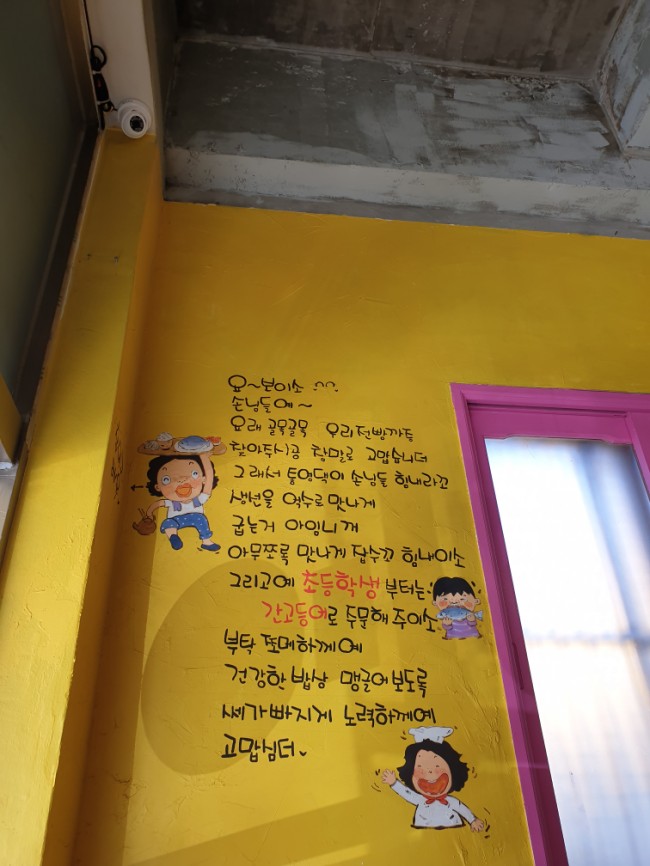 요~보이소 ^^
손님들예~
요래 골목골목 우리전빵까등
찾아주시공 참말로 고맙심니더
그래서 통영댁이 손님들 힘내라꼬
생선을 억수로 맛나게
굽는거 아입니꺼
아무쪼록 맛나게 잡수꼬 힘내이소
그리고예 초등학생 부터는
간고등어로 주문해 주이소
부탁 또메하께예
건강한 밥상 맹글어 보도록
쎄가빠지게 노력하께예
고맙심더